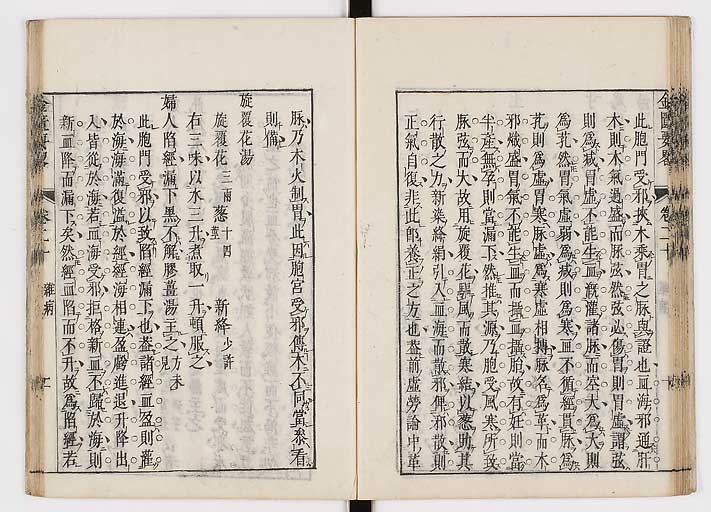 此胞門受邪挾木乘胃之脉與證也血海邪通肝
木則木氣過盛而脉弦然弦必傷胃則胃虛謂弦
則為減胃虛不能生血灌諸脉而空大為大則
為芤然胃氣虛弱為減則為寒血不循經貫脉為
芤則為虛胃寒脉虛為寒虛相摶脉名為革而木
邪熾盛胃氣不能生血而攝血攝胎故有妊則當
半産無孕則當漏下然推其源乃胞受風寒所致
脉弦而大故用旋覆花驅風而散寒結以葱助其
行散之力新葉絳絹引入血海而散邪俾邪散則
正氣自復非此即養正之方也蓋前虛勞論中革
脉乃木火制胃此因胞宮受邪傳木不同當叅看
則備
旋覆花湯
旋覆花三兩 葱十四莖 新絳少許
右三味以水三升煮取一升頓服之
婦人陷經漏下黑不解膠薑湯主之方未見
此胞門受邪以致陷經漏下也蓋諸經血盈則灌
於海海滿復溢於經經海相連盈虧進退升降出
入皆從於海若血海受邪拒格新血不歸於海則
新血降而漏下矣然經血陷而不升故為陷經若
金匱要畧
卷二十
雜病